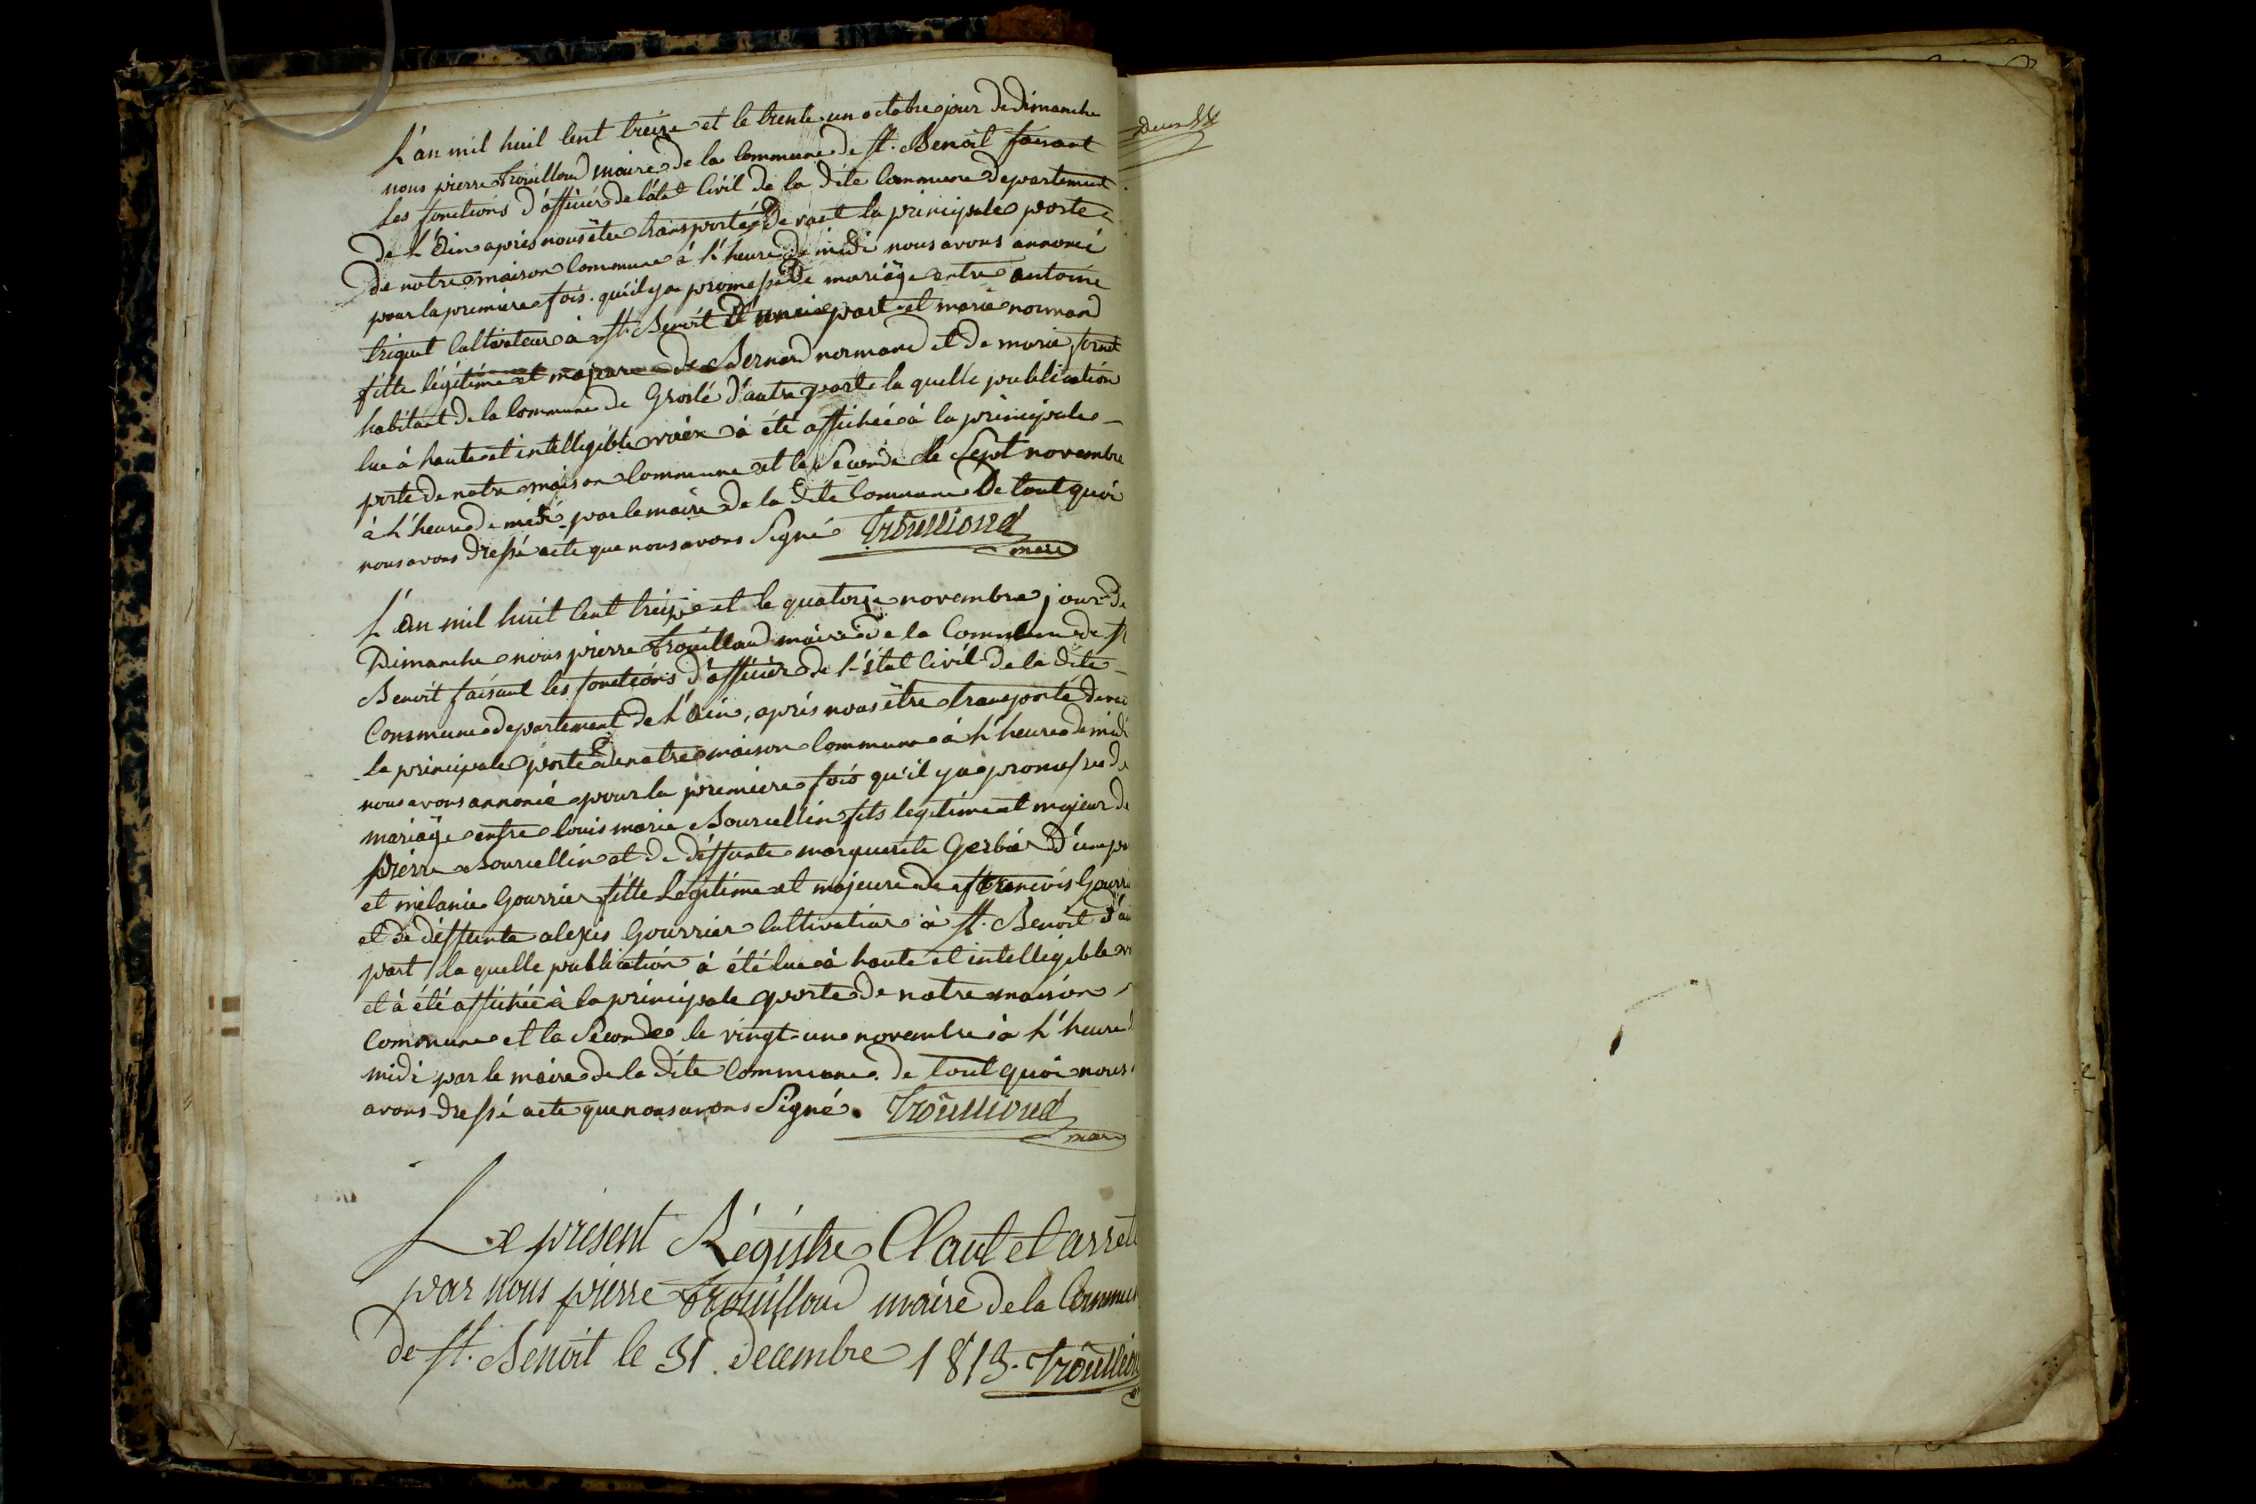 L'an mil huit Cent treize et le trente-un octobre jour de dimanche
nous pierre trouilloud maire de la Commune de St. Benoit faisant
les fonctions d'officier de l'état Civil de la dite Commune departement
de L'Ain après nous être transporté devant la principale porte
de notre maison Commune à l'heure de midi nous avons annoncé
pour la premiere fois qu'il y a promesse de mariage entre antoine
triquet Cultivateur à St. Benoit d'une part et marie normand
fille légitime et majeure de Bernard normand et de marie
habitant de la Commune de Groslé d'autre part la quelle publication
lue à haute et intelligible voix à été affichée à la principale
porte de notre maison Commune et la Seconde le Sept novembre
à l'heure de midi par le maire de la dite Commune De tout quoi
nous avons dressé acte que nous avons Signé Trouilloud
maire
L'an mil huit Cent treize et le quatorze novembre jour de
Dimanche nous pierre trouilloud maire de la Commune de St
Benoit faisant les fonctions d'officier de l'état Civil de la dite
Commune departement de L'ain, après nous être transporté devan
la principale porte de notre maison Commune à l'heure de midi
nous avons annoncé pour la premiere fois qu'il y a promesse de
mariage entre louis marie Bourcellin fils legitime et majeur de
pierre Bourcellin et de deffunte marguerite Gerbier D'une pa
et mélanie Gourrier fille Légitime et majeure de francois Gourri
et de deffunte alexis Gourrier Cultivateur à St. Benoit d'au
part la quelle publication à été lue à haute et intelligible v
et à été affichée à la principale porte de notre maison
Commune et la Seconde le vingt-un novembre à l'heure d
midi par le maire de la dite Commune de tout quoi nous
avons dressé acte que nous avons Signé. Trouilloud
maire
Le présent Régistre Claut et arreté
par nous pierre trouilloud maire de la Commun
de St. Benoit le 31. decembre 1813. Trouillou